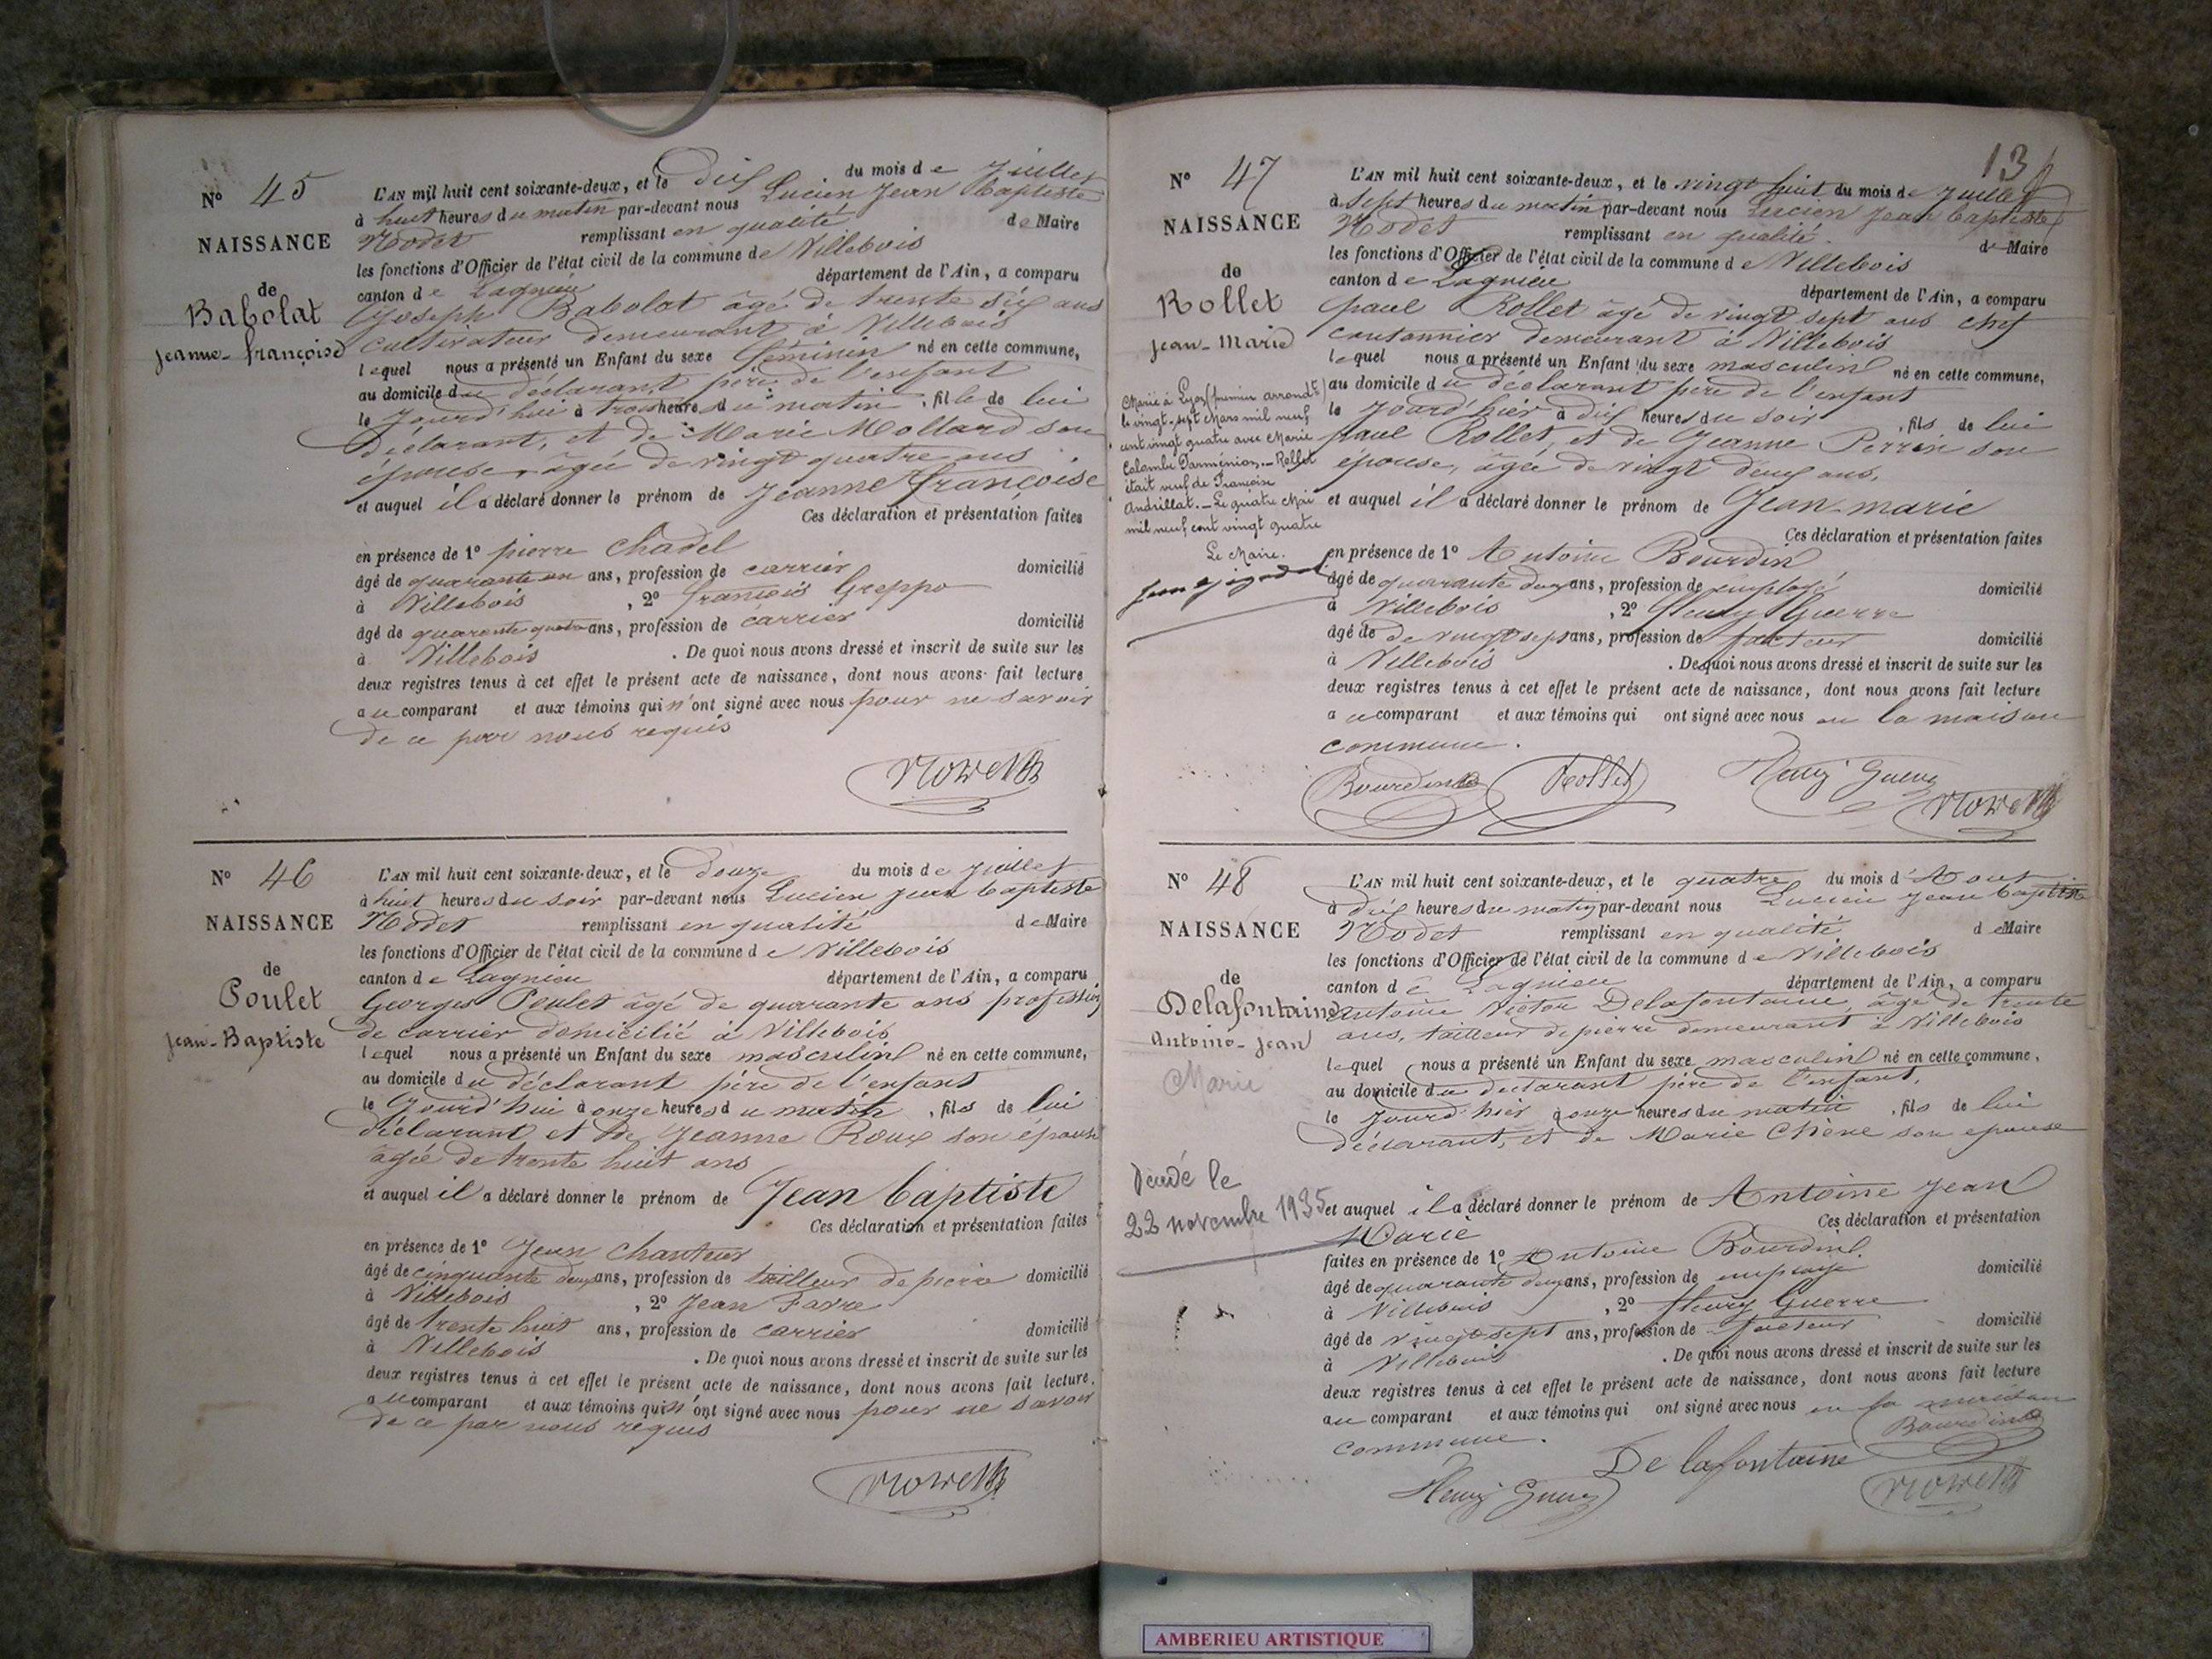 Nº 45
NAISSANCE
de
Babolat
Jeanne-françoise
L'AN mil huit cent soixante-deux, et le Dix du mois de Juillet
à huit heures du matin par-devant nous Lucien Jean baptiste
Nodet remplissant en qualité de Maire
les fonctions d'Officier de l'état civil de la commune de Villebois
canton de Lagnieu département de l'Ain, a comparu
Joseph Babolat âgé de trente six ans
cultivateur demeurant à Villebois
lequel nous a présenté un Enfant du sexe féminin né en cette commune,
au domicile du déclarant père de l'enfant
le Jourd'hui à trois heures du matin, fille de lui
Déclarant, et de Marie Mollard son
épouse, âgée de vingt quatre ans
et auquel il a déclaré donner le prénom de Jeanne françoise
Ces déclaration et présentation faites
en présence de 1º pierre Chadel
âgé de quarante un ans, profession de carrier domicilié
à Villebois, 2º françois Greppo
âgé de quarante quatre ans, profession de carrier domicilié
à Villebois. De quoi nous avons dressé et inscrit de suite sur les
deux registres tenus à cet effet le présent acte de naissance, dont nous avons fait lecture
au comparant et aux témoins qui n'ont signé avec nous pour ne savoir
de ce par nous requis
Nº 46
NAISSANCE
de
Poulet
Jean-Baptiste
L'AN mil huit cent soixante-deux, et le Douze du mois de Juillet
à huit heures du soir par-devant nous Lucien Jean baptiste
Nodet remplissant en qualité de Maire
les fonctions d'Officier de l'état civil de la commune de Villebois
canton de Lagnieu département de l'Ain, a comparu
Georges Poulet âgé de quarante ans profession
de carrier domicilié à Villebois
lequel nous a présenté un Enfant du sexe masculin né en cette commune,
au domicile du déclarant père de l'enfant
le Jourd'hui à onze heures du matin, fils de lui
déclarant et de Jeanne Roux son épouse
âgée de trente huit ans
et auquel il a déclaré donner le prénom de Jean baptiste
Ces déclaration et présentation faites
en présence de 1º Jean Chanteur
âgé de cinquante deux ans, profession de tailleur de pierre domicilié
à Villebois, 2º Jean Favre
âgé de trente huit ans, profession de carrier domicilié
à Villebois. De quoi nous avons dressé et inscrit de suite sur les
deux registres tenus à cet effet le présent acte de naissance, dont nous avons fait lecture.
au comparant et aux témoins qui n'ont signé avec nous pour ne savoir
de ce par nous requis
13
Nº 47
NAISSANCE
de
Rollet
Jean-Marie
Marié à Lyon (premier arrondt)
le vingt-sept Mars mil neuf
cent vingt quatre avec Marie
Colombe Darménion.- Rollet
était veuf de Françoise
Andrillat.- Le quatre Mai
mil neuf cent vingt quatre
Le Maire.
L'AN mil huit cent soixante-deux, et le vingt huit du mois de Juillet
à Sept heures du matin par-devant nous Lucien Jean baptiste
Nodet remplissant en qualité. de Maire
les fonctions d'Officier de l'état civil de la commune de Villebois
canton de Lagnieu département de l'Ain, a comparu
paul Rollet âgé de vingt sept ans chef
cantonnier demeurant à Villebois
lequel nous a présenté un Enfant du sexe masculin né en cette commune,
au domicile du déclarant père de l'enfant
le Jourd'hier à dix heures du soir, fils de lui
paul Rollet, et de Jeanne Perrin son
épouse, âgée de vingt deux ans,
et auquel il a déclaré donner le prénom de Jean-marie
Ces déclaration et présentation faites
en présence de 1º Antoine Bourdin
âgé de quarante deux ans, profession de employé domicilié
à Villebois, 2º fleury Guerre
âgé de de vingt sept ans, profession de facteur domicilié
à Villebois. De quoi nous avons dressé et inscrit de suite sur les
deux registres tenus à cet effet le présent acte de naissance, dont nous avons fait lecture
au comparant et aux témoins qui ont signé avec nous en la maison
commune.
Bourdin Rollet Fleury Guerre
Nº 48
NAISSANCE
de
Delafontaine
Antoine-Jean
Marie
Décédé le
22 novembre 1935
L'AN mil huit cent soixante-deux, et le quatre du mois d'Aout
à dix heures du matin par-devant nous Lucien Jean baptiste
Nodet remplissant en qualité de Maire
les fonctions d'Officier de l'état civil de la commune de Villebois
canton de Lagnieu département de l'Ain, a comparu
Antoine Victor Delafontaine, âgé de trente
ans, tailleur de pierre demeurant à Villebois
lequel nous a présenté un Enfant du sexe masculin né en cette commune,
au domicile du déclarant père de l'enfant.
le Jourd'hier à onze heures du matin, fils de lui
déclarant, et de Marie Chêne son épouse
et auquel il a déclaré donner le prénom de Antoine Jean
Marie Ces déclaration et présentation
faites en présence de 1º Antoine Bourdin.
âgé de quarante deux ans, profession de employé domicilié
à Villebois, 2º fleury Guerre
âgé de vingt sept ans, profession de facteur domicilié
à Villebois. De quoi nous avons dressé et inscrit de suite sur les
deux registres tenus à cet effet le présent acte de naissance, dont nous avons fait lecture
au comparant et aux témoins qui ont signé avec nous en la maison
commune. Bourdin
Delafontaine
Fleury Guerre
AMBERIEU ARTISTIQUE